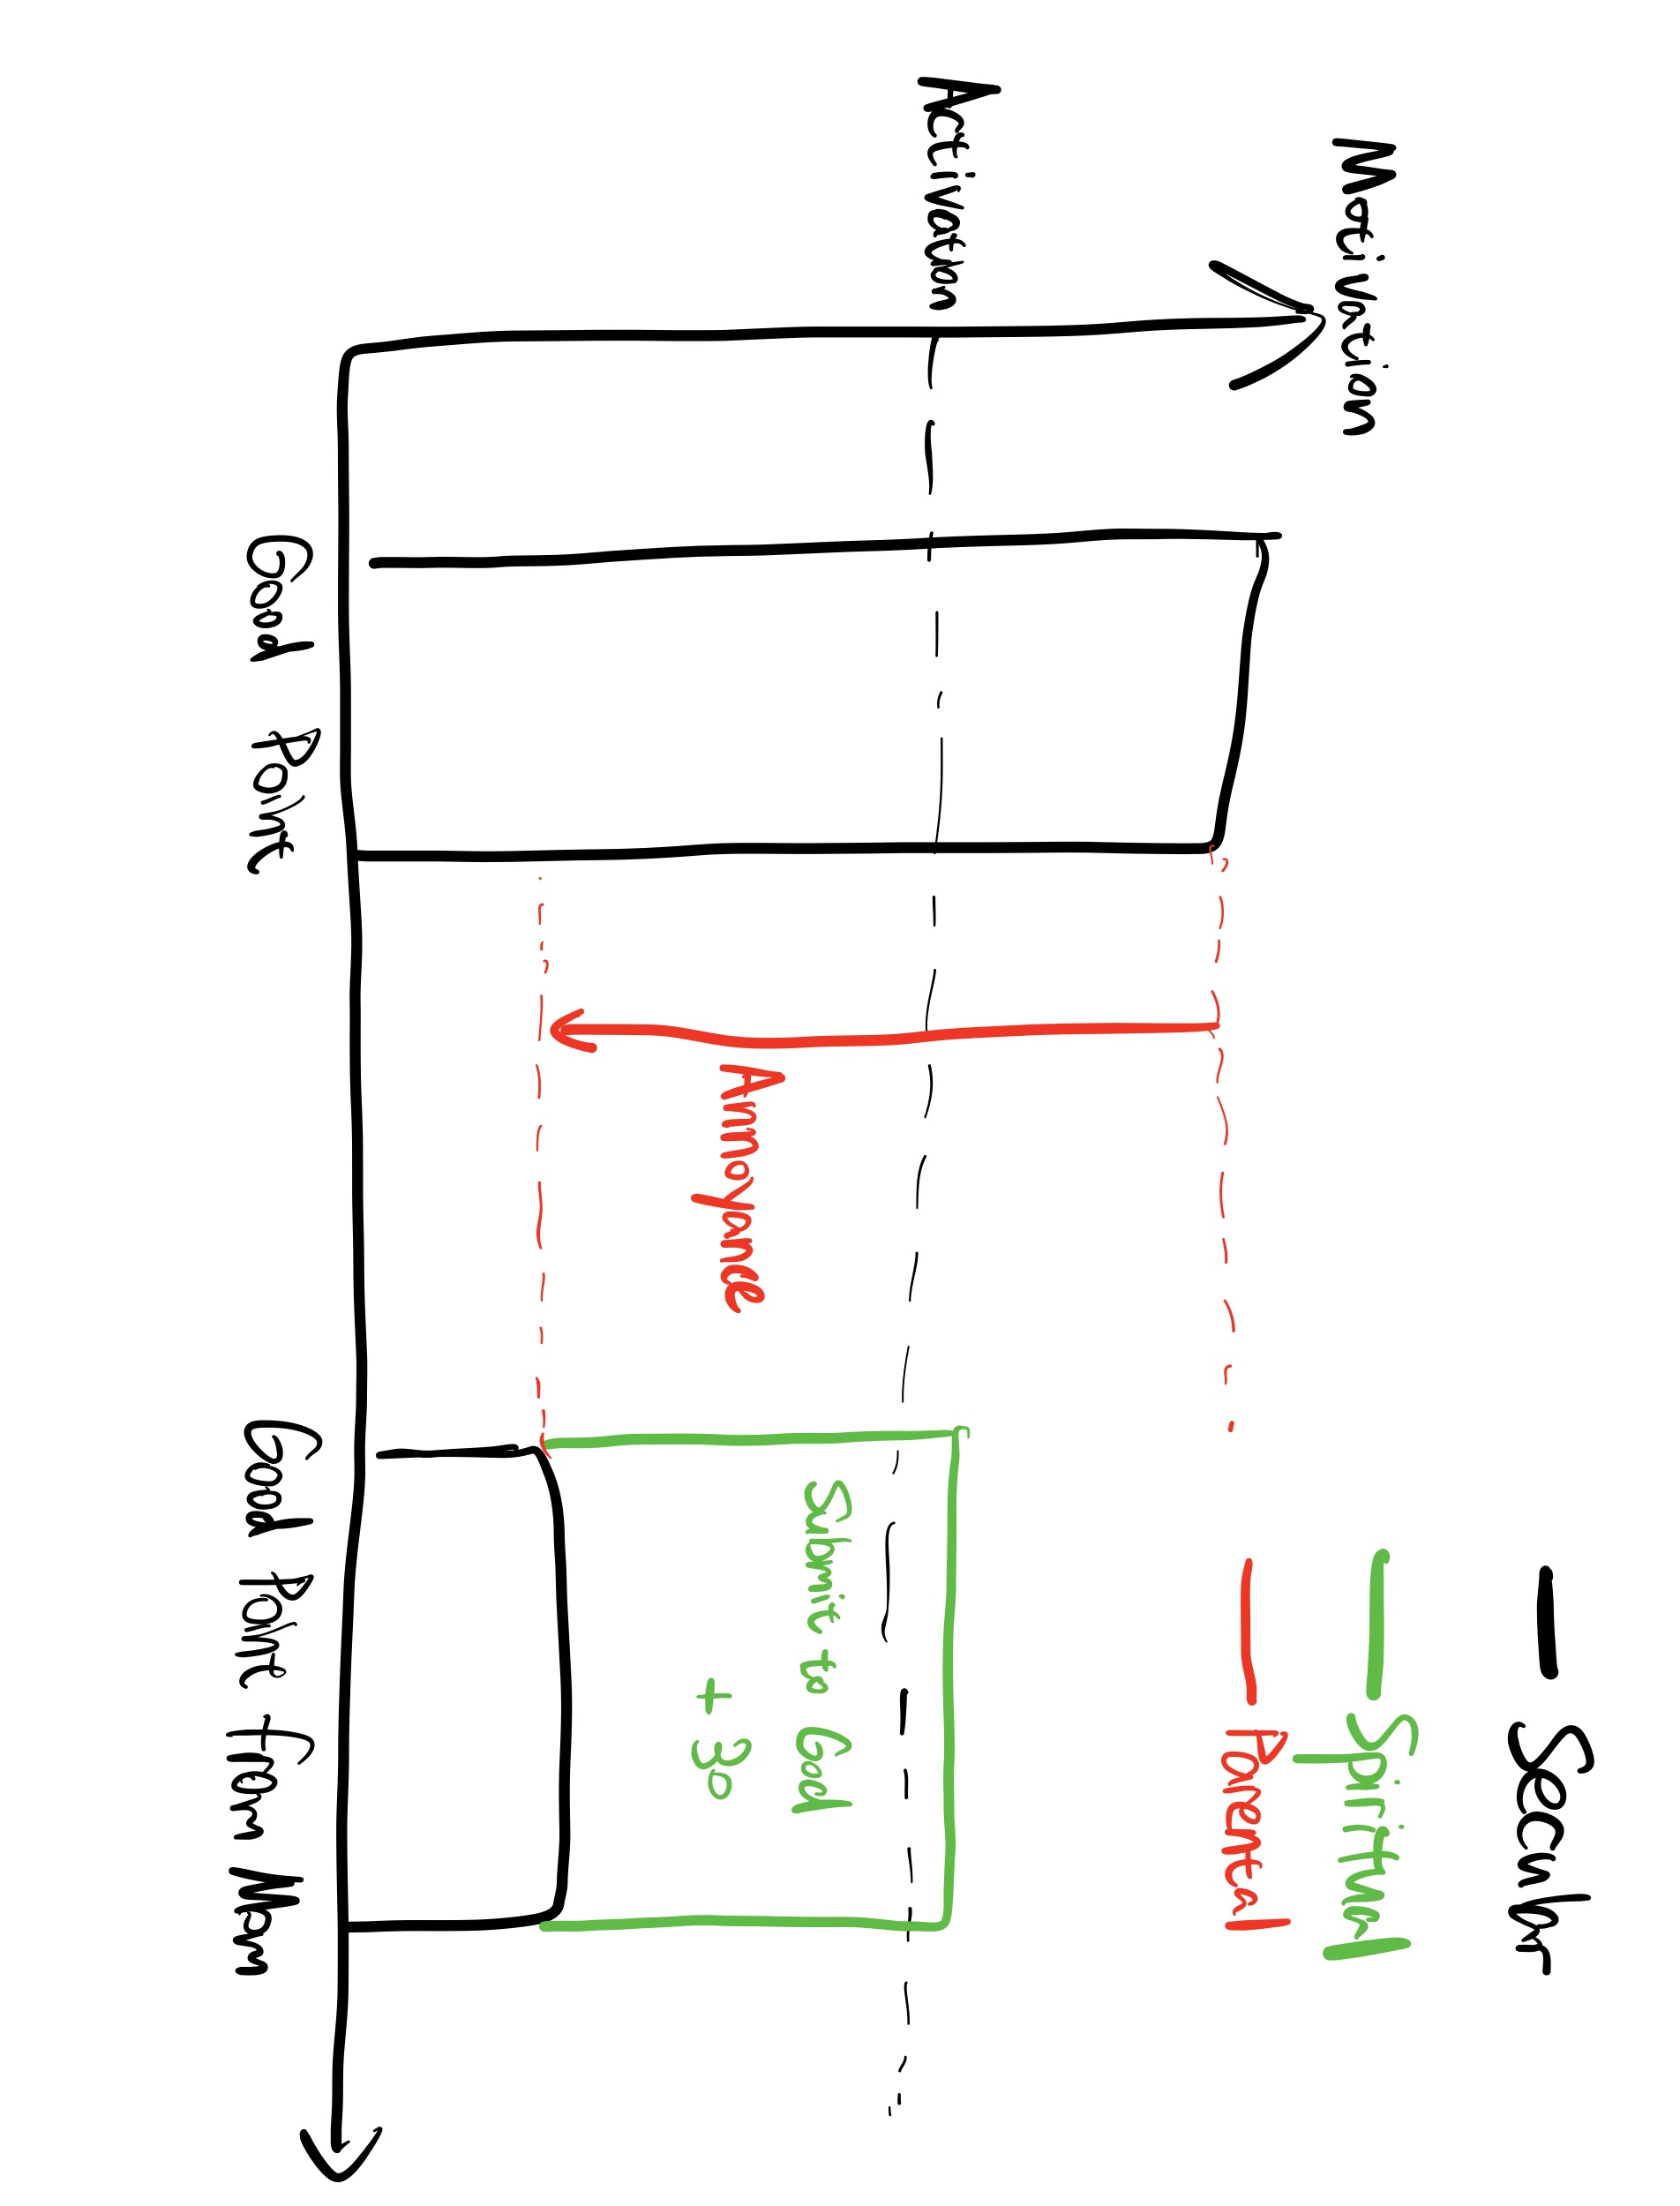 Secular
Spiritual
Personal
Motivation
Activation
Annoyance
Submit to God
+ 30
Good Point
Good Point from Man